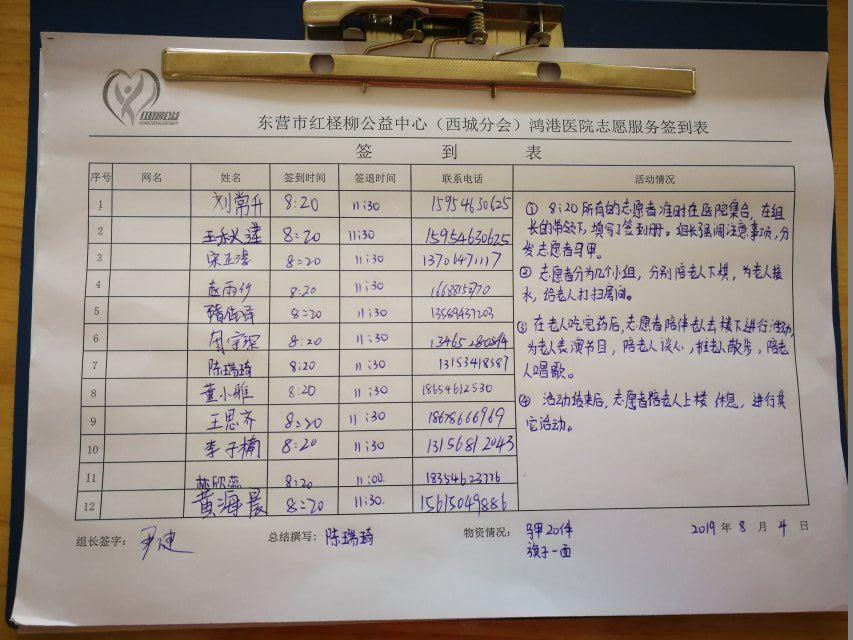 红柽柳公益
东营市红柽柳公益中心（西城分会）鸿港医院志愿服务签到表
签 到 表
序号 网名 姓名 签到时间 签退时间 联系电话 活动情况
1 刘常升 8:20 11:30 15954630625
2 8:20 11:30 15954630625
3 8:20 11:30 13706471117
4 赵雨汐 8:20 11:30
5 8:20 11:30 13589437203
6 8:20 11:30
7 陈瑞琦 8:20 11:30 13153418587
8 董小雅 8:20 11:30 18654612530
9 王思齐 8:20 11:30 18678666969
10 李子楠 8:20 11:30 13156812043
11 林欣蕊 8:20 11:00. 18354623776
12 黄海晨 8:20 11:30. 15615049886
① 8:20所有的志愿者准时在医院集合，在组
长的带领下，填写了签到册。组长强调注意事项，分
发志愿者马甲。
② 志愿者分为几个小组，分别陪老人下棋，为老人接
水，给老人打扫房间。
③ 在老人吃完药后，志愿者陪伴老人去楼下进行活动，
为老人表演节目，陪老人谈心，推老人散步，陪老
人唱歌。
④ 活动结束后，志愿者陪老人上楼休息，进行其
它活动。
组长签字： 总结撰写：陈瑞琦 物资情况： 马甲20件 2019年8月4日
旗子一面